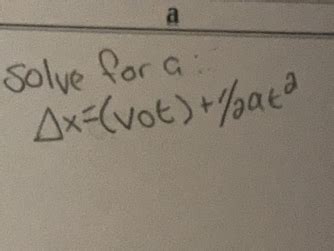 a
Solve for a:
Δx=(v0t)+1/2at²